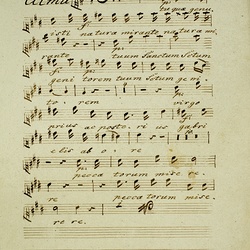 Alma
tu quae genu,
isti natura mirante natura mi,
rante tuum Sanctum totum
geni torem tuum totum ge ni,
to, rem virgo
prius ac poste, ri us gabri
elis ab o, re
pecca torum mise re,
re peccatorum mise,
re re.